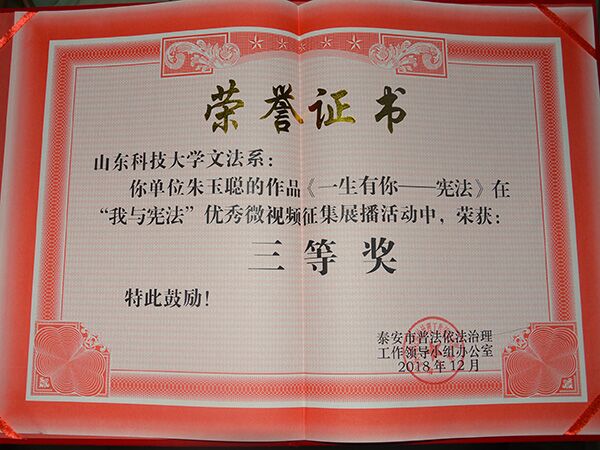 荣誉证书
山东科技大学文法系：
你单位朱玉聪的作品《一生有你——宪法》在
“我与宪法”优秀微视频征集展播活动中，荣获：
三等奖
特此鼓励！
泰安市普法依法治理
工作领导小组办公室
2018年12月